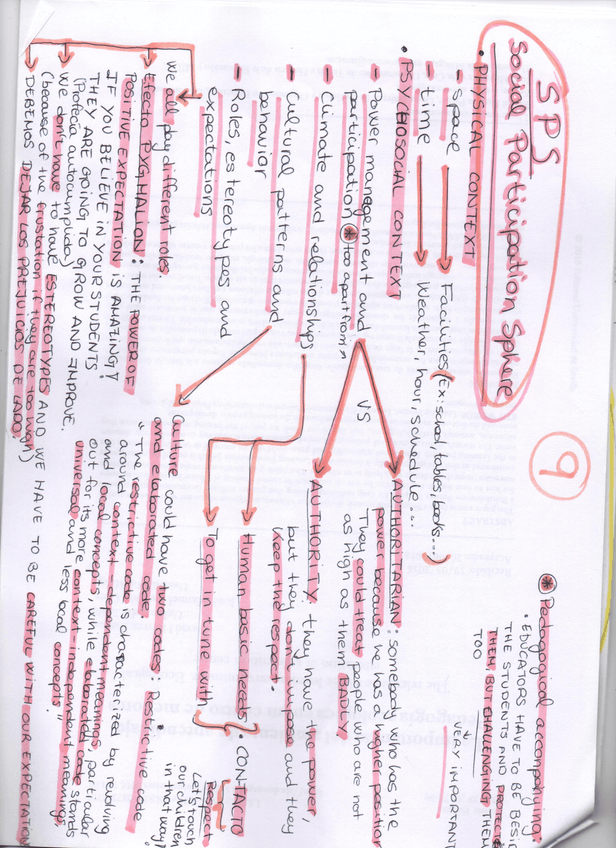 SPS
Social Participation Sphere
9
• PHYSICAL CONTEXT
- space → Facilities (Ex: school, tables, books...)
- time → Weather, hour, schedule...
• PSYCHOSOCIAL CONTEXT
- Power management and
participation * "too apart from"
- Climate and relationships
- Cultural patterns and
behavior
- Roles, estereotypes and
expectations
* Pedagogical accompanying:
• EDUCATORS HAVE TO BE
THE STUDENTS AND
THEM, BUT CHALLENGING THEM
TOO
VERY IMPORTANT
AUTHORITARIAN: somebody who has the
power because he has a higher position
They could treat people who are not
as high as them BADLY.
VS
AUTHORITY: they have the power,
but they don't impose and they
keep the respect.
Human basic needs
To get in tune with
• CONTACTO
Respect
Let's touch
our children
in that way!
Culture could have two codes: Restrictive code
and elaborated code.
"The restrictive code is characterized by revolving
around context-dependent meanings, particular
and local concepts, while elaborated code stands
out for its more context-independent meanings,
universal and less local concepts"
We all play different roles.
Efecto PYGMALION: THE POWER OF
POSITIVE EXPECTATION IS AMAZING!
IF YOU BELIEVE IN YOUR STUDENTS
THEY ARE GOING TO GROW AND IMPROVE.
(Profecía autocumplida)
We don't have to have ESTEREOTYPES AND WE HAVE TO BE CAREFUL WITH OUR EXPECTATION
(because of the frustation if they are too high)
DEBEMOS DEJAR LOS PREJUICIOS DE LADO.